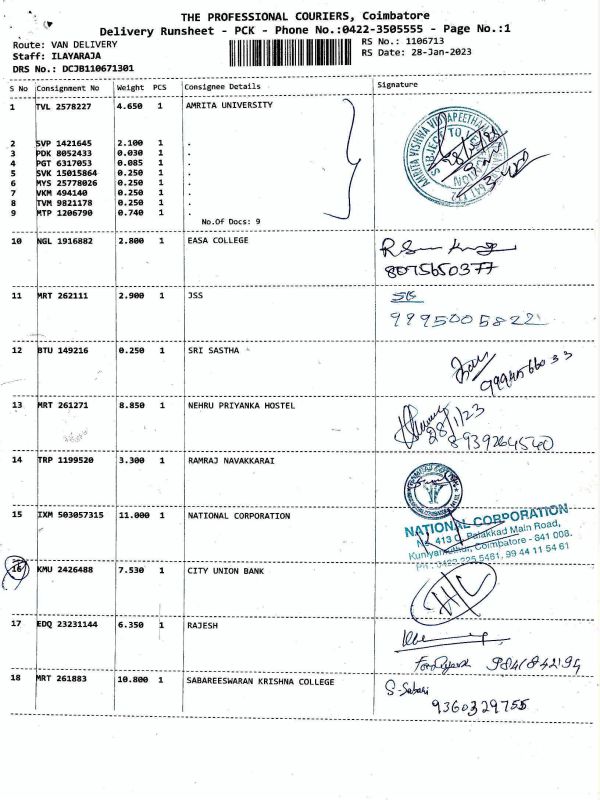 THE PROFESSIONAL COURIERS, Coimbatore
Delivery Runsheet - PCK - Phone No.:0422-3505555 - Page No.:1
Route: VAN DELIVERY RS No.: 1106713
Staff: ILAYARAJA RS Date: 28-Jan-2023
DRS No.: DCJB110671301
S No Consignment No Weight PCS Consignee Details Signature
1 TVL 2578227 4.650 1 AMRITA UNIVERSITY
2 SVP 1421645 2.100 1 .
3 PDK 8052433 0.030 1 .
4 PGT 6317053 0.085 1 .
5 SVK 15015864 0.250 1 .
6 MYS 25778026 0.250 1 .
7 VKM 494140 0.250 1 .
8 TVM 9821178 0.250 1 .
9 MTP 1206790 0.740 1 .
No.Of Docs: 9
AMRITA VISHWA VIDYAPEETHAM
SUBJECT TO
10 NGL 1916882 2.800 1 EASA COLLEGE
8075650377
11 MRT 262111 2.900 1 JSS
9995005822
12 BTU 149216 0.250 1 SRI SASTHA
13 MRT 261271 8.850 1 NEHRU PRIYANKA HOSTEL
28/1/23
8939264540
14 TRP 1199520 3.300 1 RAMRAJ NAVAKKARAI
15 IXM 503057315 11.000 1 NATIONAL CORPORATION
NATIONAL CORPORATION
Palakkad Main Road,
Kuniyamuthur, Coimbatore - 641 008.
99 44 11 54 61
16 KMU 2426488 7.530 1 CITY UNION BANK
17 EDQ 23231144 6.350 1 RAJESH
18 MRT 261883 10.800 1 SABAREESWARAN KRISHNA COLLEGE
S-Sabari
9360329755